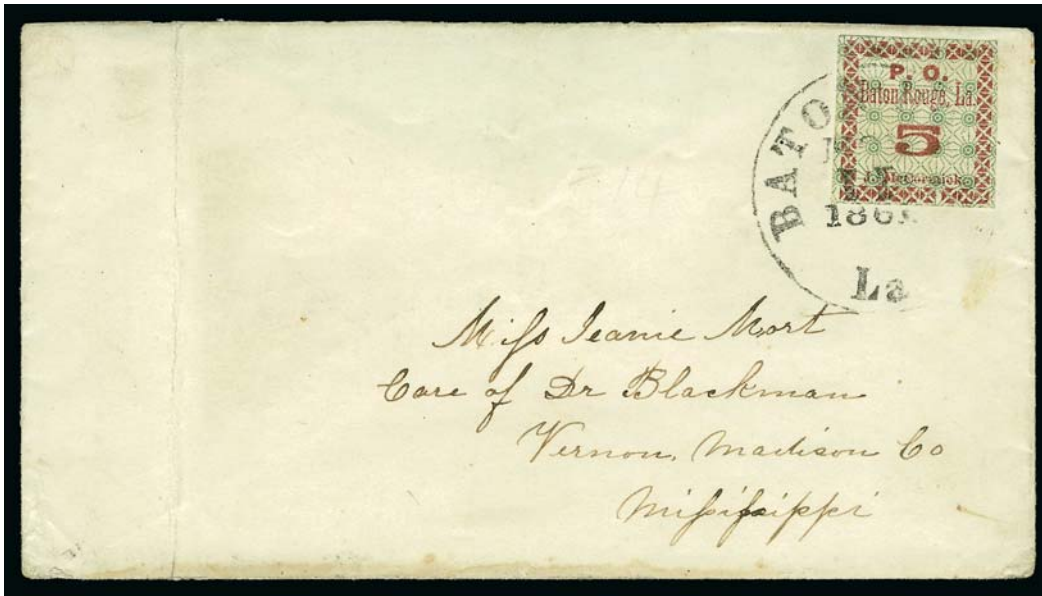 P. O.
Baton Rouge, La.
5
J. McCormick
BATO
11
186
La
Miſs Jeanie Mort
Care of Dr Blackman
Vernon, Madison Co
Miſsiſsippi